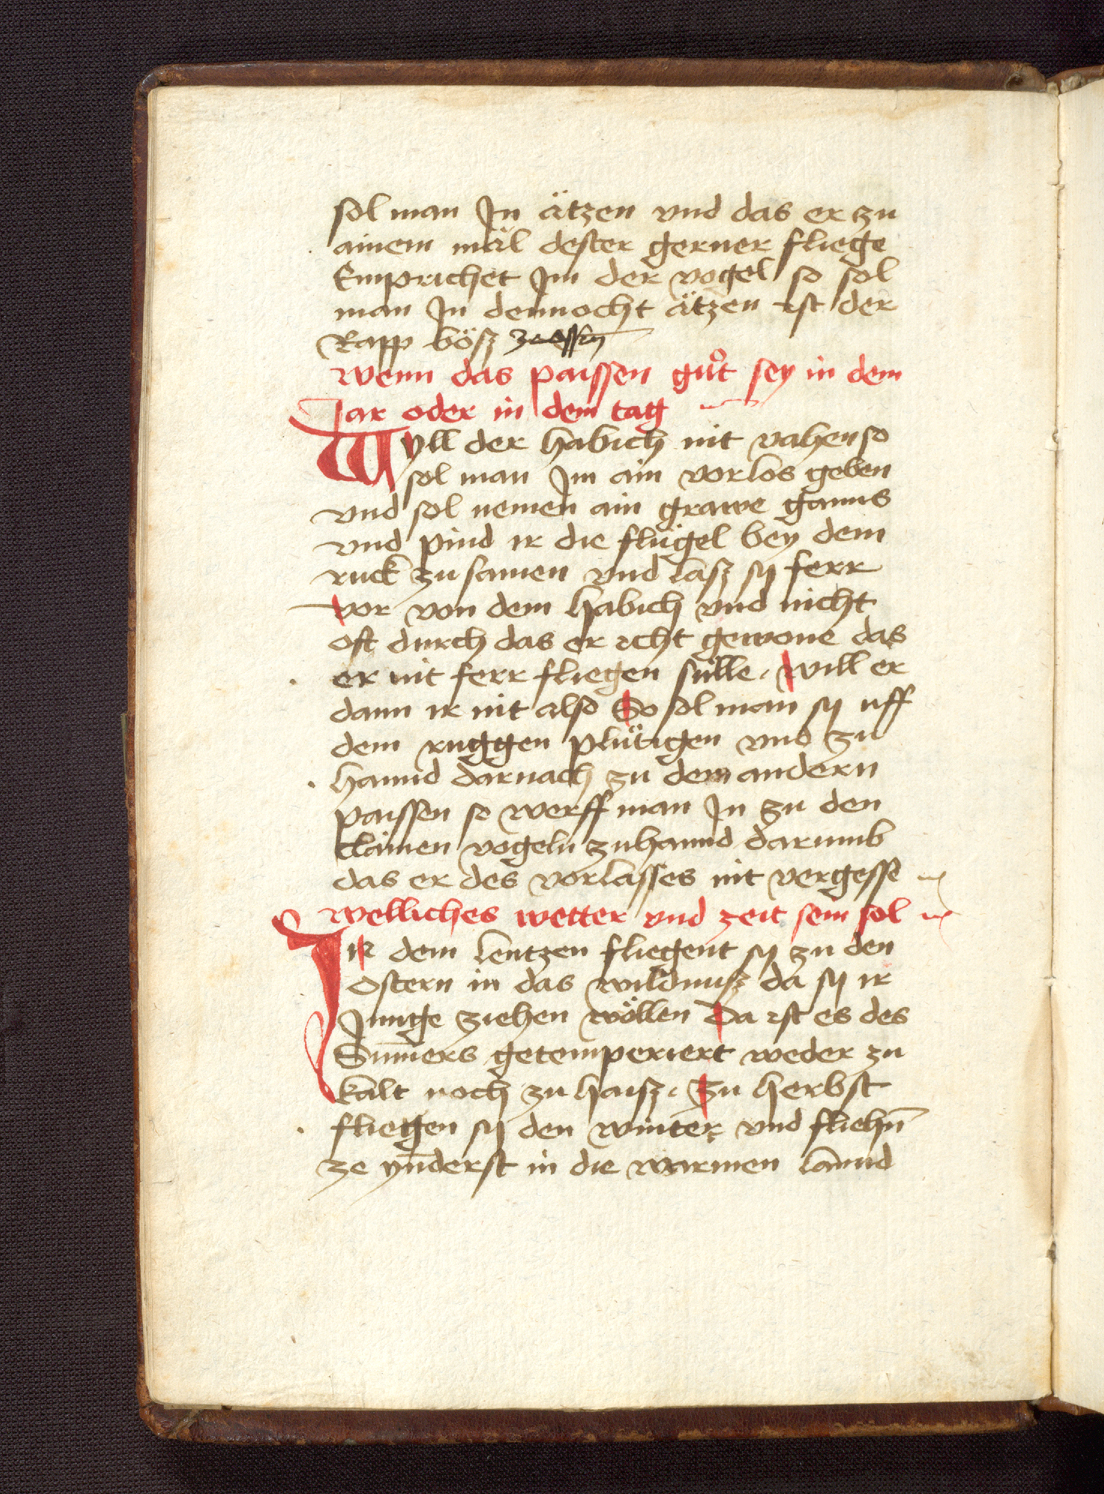 sol man Jn ätzen vnd das er zu
ainem mäl dester gerner fliege
Emprichet Jm der vogel so sol
man Jn dennocht ätzen ist der
Rapp bösz
wenn das paissen guͦt sey in dem
Jar oder in dem tag
Wyll der habich nit vahen so
sol man Jm ain vorlos geben
vnd sol nemen ain grawe ganns
vnd pind ir die flügel bey dem
ruck zu samen vnd lasz sy ferr
vor von dem habich vnd nicht
oft durch das er icht gewone das
er nit ferr fliegen sülle will er
dann ir nit also So sol man sy uff
dem ruggen plütigen vnd zu
hannd darnach zu dem andern
paissen so werff man Jn zu den
clainen vogeln zuhannd darumb
das er des vorlasses nit vergesse
welliches wetter vnd zeit sein sol
Jn dem lentzen fliegent sy zu den
ostern in das wildnusz da sy ir
Junge ziehen wöllen Da ist es des
Sum̄ers getemperiert weder zu
kalt noch zu haisz Zu herbst
fliegen sy den winter vnd fliehn̄
ze yn̄derst in die warmen lannd